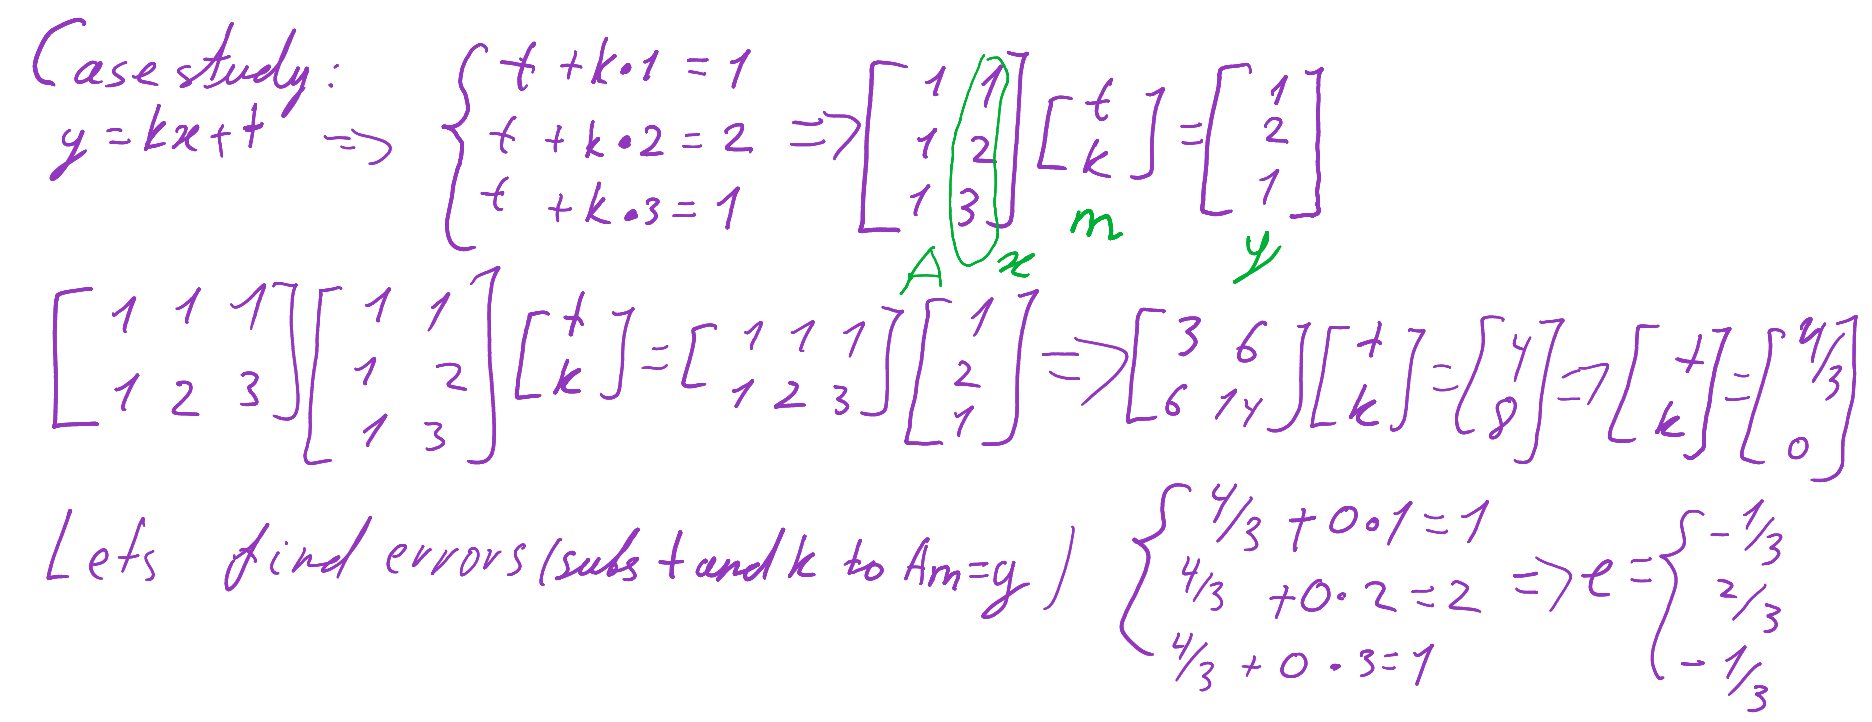 Case study: { t + k·1 = 1, t + k·2 = 2, t + k·3 = 1 => [1 1; 1 2; 1 3] [t; k] = [1; 2; 1]
y = kx + t =>
A x m y
[1 1 1; 1 2 3] [1 1; 1 2; 1 3] [t; k] = [1 1 1; 1 2 3] [1; 2; 1] => [3 6; 6 14] [t; k] = [4; 8] => [t; k] = [4/3; 0]
Lets find errors (subs t and k to Am=y) { 4/3 + 0·1 = 1, 4/3 + 0·2 = 2, 4/3 + 0·3 = 1 => e = { -1/3, 2/3, -1/3